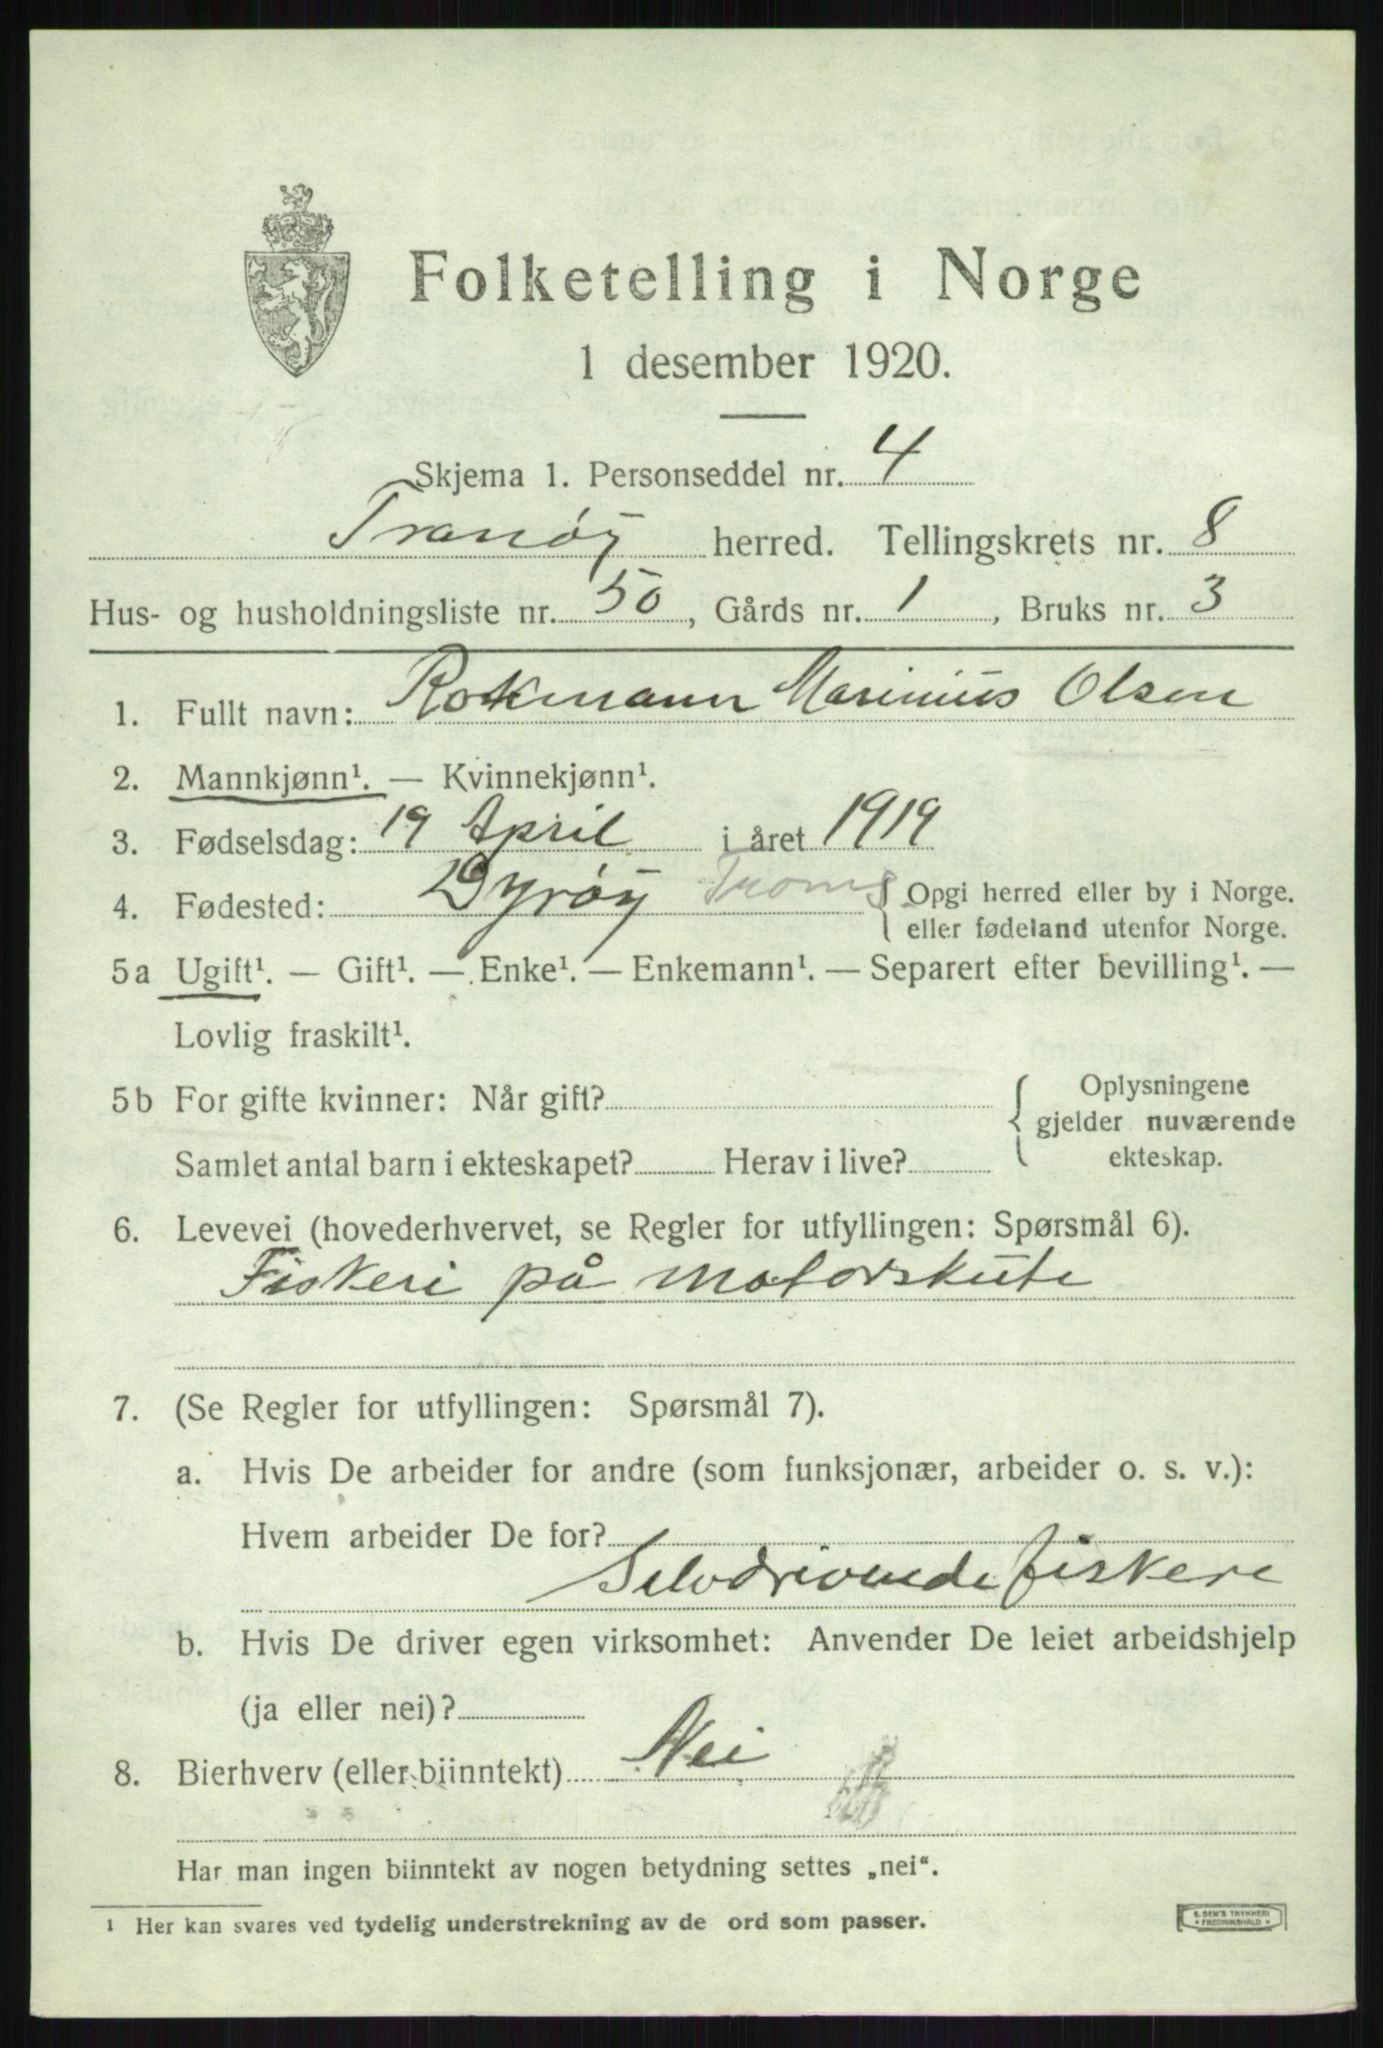 Folketelling i Norge
1 desember 1920.
Skjema 1. Personseddel nr. 4
Tranøy herred. Tellingskrets nr. 8
Hus- og husholdningsliste nr. 50, Gårds nr. 1, Bruks nr. 3
1. Fullt navn: Rokmann Marinius Olsen
2. Mannkjønn¹. — Kvinnekjønn¹.
3. Fødselsdag: 19 April i året 1919
4. Fødested: Dyrøy Troms { Opgi herred eller by i Norge.
eller fødeland utenfor Norge.
5a Ugift¹. — Gift¹. — Enke¹. — Enkemann¹. — Separert efter bevilling¹. —
Lovlig fraskilt¹.
5b For gifte kvinner: Når gift?
Samlet antal barn i ekteskapet? Herav i live?
{ Oplysningene
gjelder nuværende
ekteskap.
6. Levevei (hovederhvervet, se Regler for utfyllingen: Spørsmål 6).
Fiskeri på motorskute
7. (Se Regler for utfyllingen: Spørsmål 7).
a. Hvis De arbeider for andre (som funksjonær, arbeider o. s. v.):
Hvem arbeider De for?
Selvdrivende fiskere
b. Hvis De driver egen virksomhet: Anvender De leiet arbeidshjelp
(ja eller nei)?
8. Bierhverv (eller biinntekt) Nei
Har man ingen biinntekt av nogen betydning settes „nei“.
1 Her kan svares ved tydelig understrekning av de ord som passer.
E. SEM'S TRYKKERI
FREDRIKSHALD